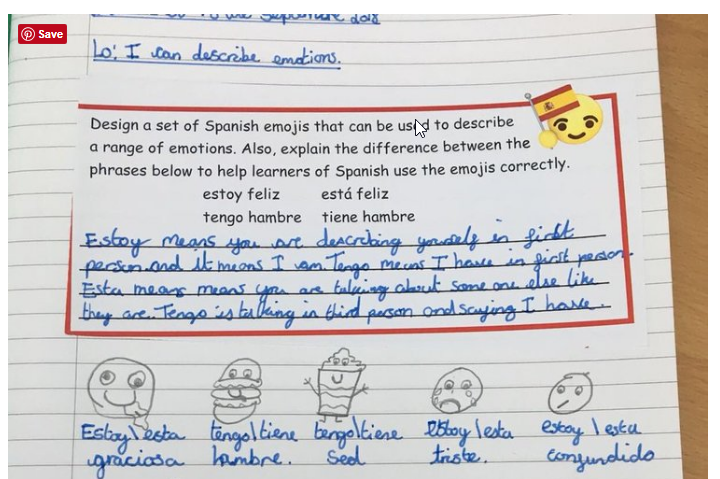 Save
September 2018
Lo: I can describe emotions.
Design a set of Spanish emojis that can be used to describe
a range of emotions. Also, explain the difference between the
phrases below to help learners of Spanish use the emojis correctly.
estoy feliz está feliz
tengo hambre tiene hambre
Estoy means you are describing yourself in first
person and it means I am. Tengo means I have in first person.
Esta means means you are talking about some one else like
they are. Tengo is talking in third person and saying I have.
Estoy\esta tengo\tiene tengo\tiene estoy\esta estoy\esta
graciosa hambre. sed triste. confundido